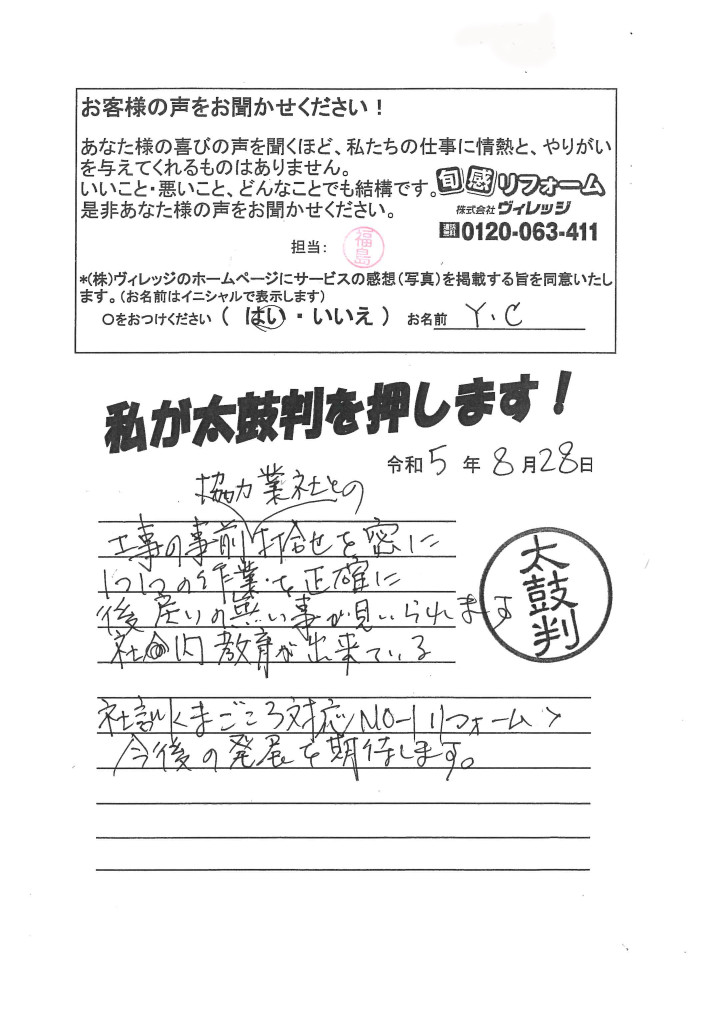 お客様の声をお聞かせください！
あなた様の喜びの声を聞くほど、私たちの仕事に情熱と、やりがい
を与えてくれるものはありません。
いいこと・悪いこと、どんなことでも結構です。
是非あなた様の声をお聞かせください。
旬感リフォーム
株式会社ヴィレッジ
通話無料0120-063-411
担当：
福島
*(株)ヴィレッジのホームページにサービスの感想（写真）を掲載する旨を同意いたし
ます。（お名前はイニシャルで表示します）
○をおつけください（ はい ・ いいえ ） お名前 Y.C
私が太鼓判を押します！
令和5年8月28日
協力業社との
工事の事前打合せを密に
1つ1つの作業を正確に
後戻りの無い事が見いられます
社内教育が出来ている
太鼓判
社訓くまごころ対応NO-1リフォーム>
今後の発展を期待します。